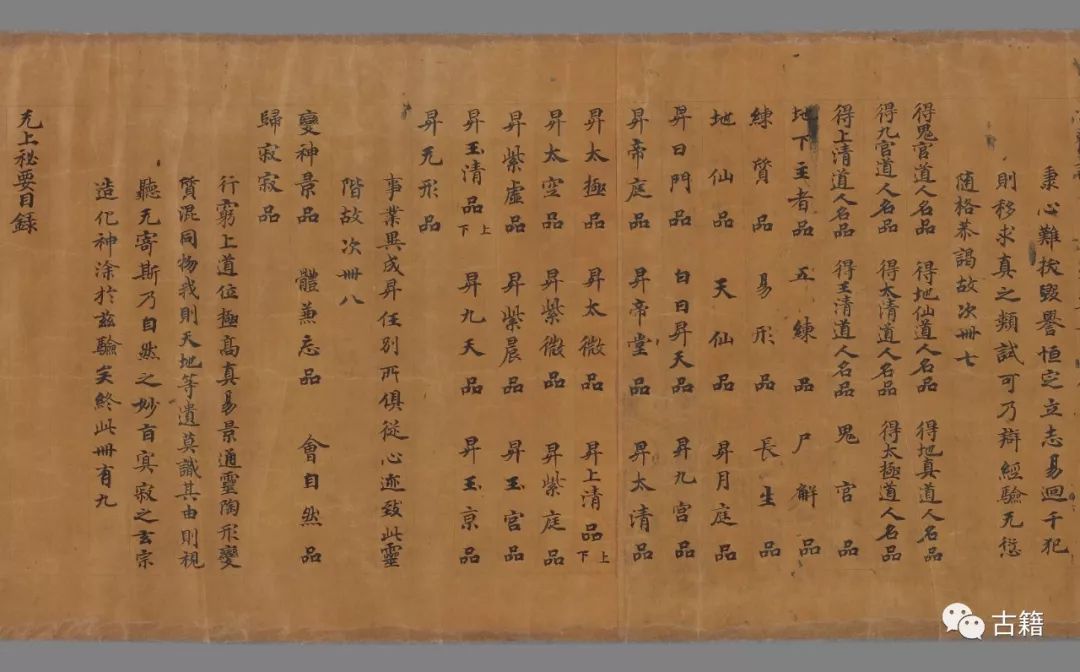 隶心難挨毀譽恒定立志易迴千犯
則移求真之類試可乃辯經驗无愆
随格恭謁故次卌七
得鬼官道人名品 得地仙道人名品 得地真道人名品
得九宫道人名品 得太清道人名品 得太極道人名品
得上清道人名品 得玉清道人名品 鬼官品
地下主者品 五練品 尸解品
練質品 易形品 長生品
地仙品 天仙品 昇月庭品
昇日門品 白日昇天品 昇九宫品
昇帝庭品 昇帝堂品 昇太清品
昇太極品 昇太微品 昇上清品上下
昇太空品 昇紫微品 昇紫庭品
昇紫虚品 昇紫晨品 昇玉宫品
昇玉清品上下 昇九天品 昇玉京品
昇无形品
事業異成昇任别所俱従心迹致此靈
階故次卌八
變神景品 體兼忘品 會自然品
歸寂寂品
行窮上道位極高真易景通靈陶形變
質混同物我則天地等遺莫識其由則視
聽无寄斯乃自然之妙旨寞寂之玄宗
造化神塗於兹驗矣終此卌有九
无上秘要目録
古籍